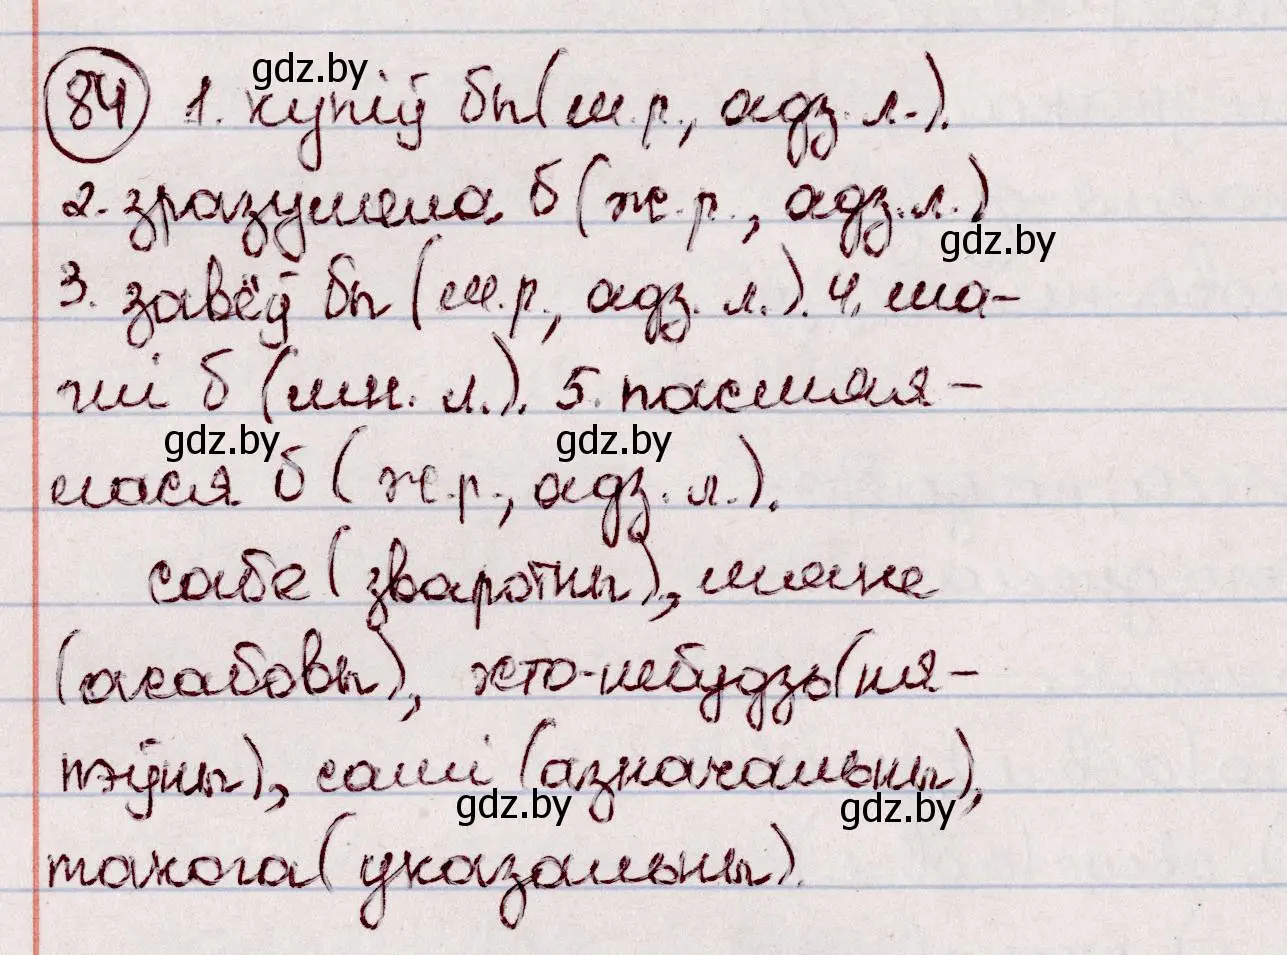 84 1. купіў бы (м.р., адз. л.).
2. зразумела б (ж.р., адз. л.)
3. завёў бы (м.р., адз. л.). 4. ма-
глі б (мн. л.). 5. пасмяя-
лася б (ж.р., адз. л.).
сабе (зваротны), мяне
(асабовы), хто-небудзь (ня-
пэўны), самі (азначальны),
такога (указальны).
gdz.by
gdz.by
gdz.by
gdz.by
gdz.by
gdz.by